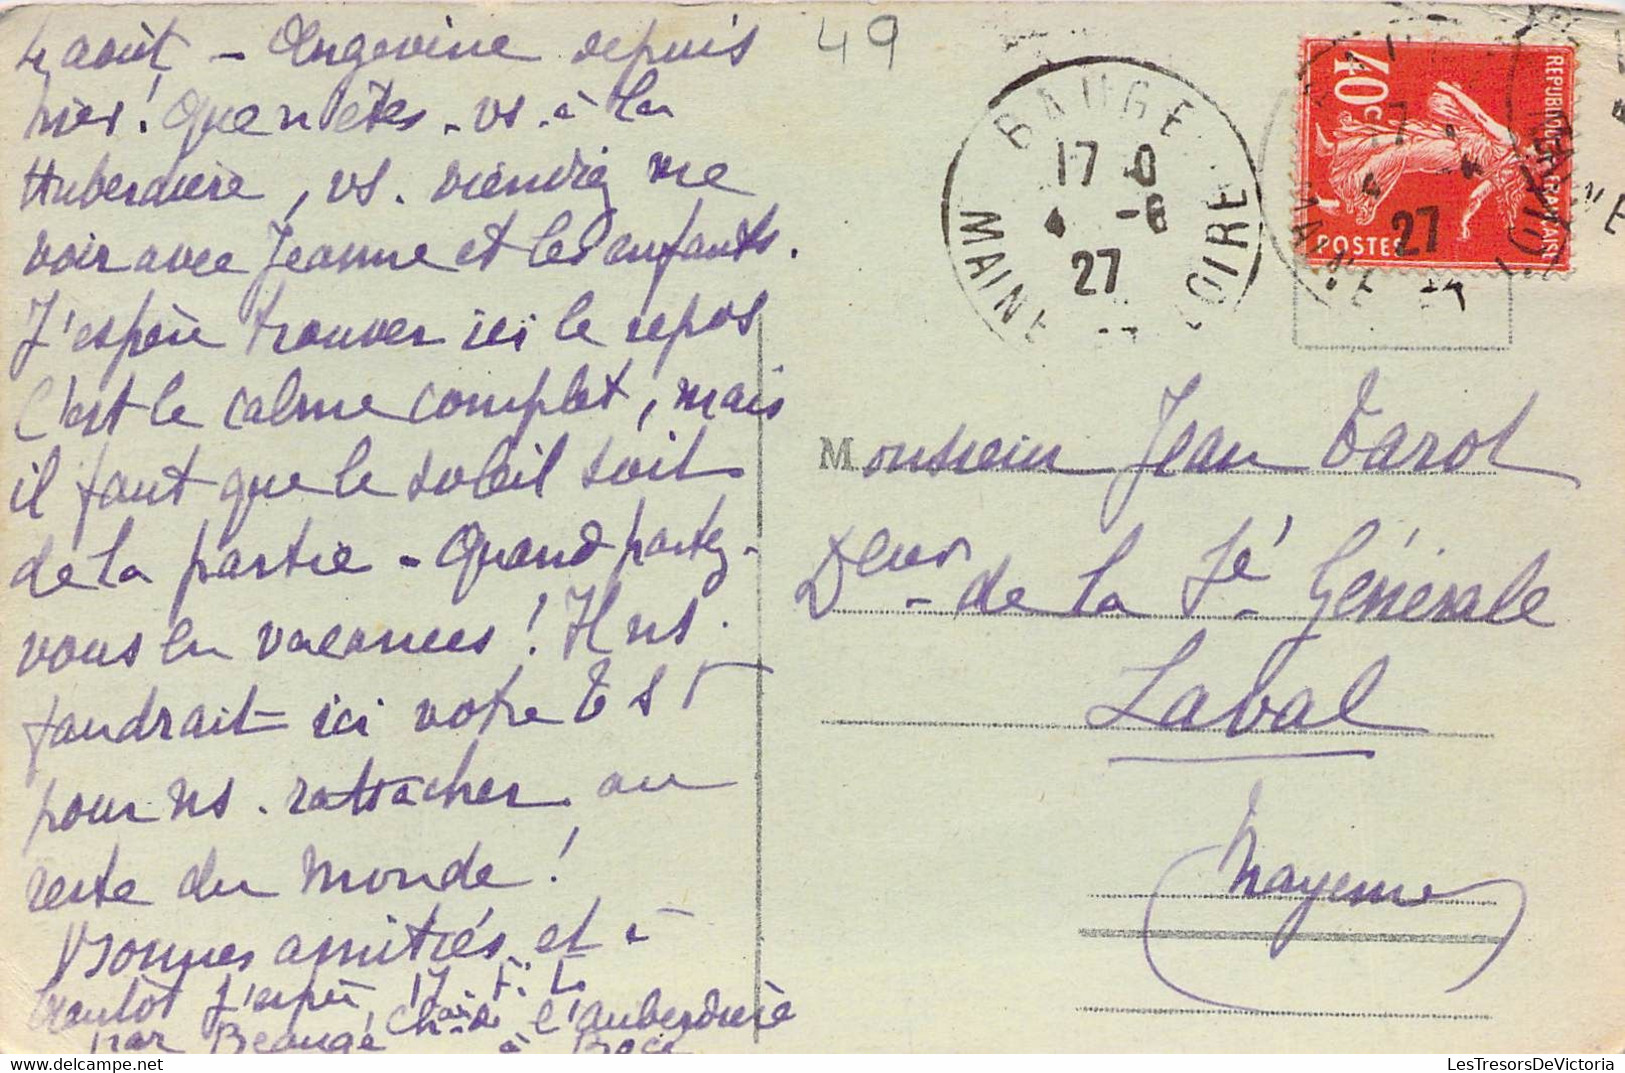 4 août - Angevine depuis
hier! Quand êtes-vs. à la
Huberdière, vs. viendrez me
voir avec Jeanne et les enfants.
J'espère trouver ici le repos
C'est le calme complet, mais
il faut que le soleil soit
de la partie - Quand partez-
vous en vacances! Il ns.
faudrait ici votre T S F
pour ns. rattacher au
reste du monde!
Bonnes amitiés et à
bientôt j'espère
l'auberdière
par Beaugé à Bocé
49
BAUGE
17 0
4 -8
27
MAINE ET LOIRE
REPUBLIQUE FRANÇAISE
40c
POSTES
27
Monsieur Jean Tarot
Deur - de la Sé Générale
Laval
Mayenne
LesTresorsDeVictoria
LesTresorsDeVictoria.com